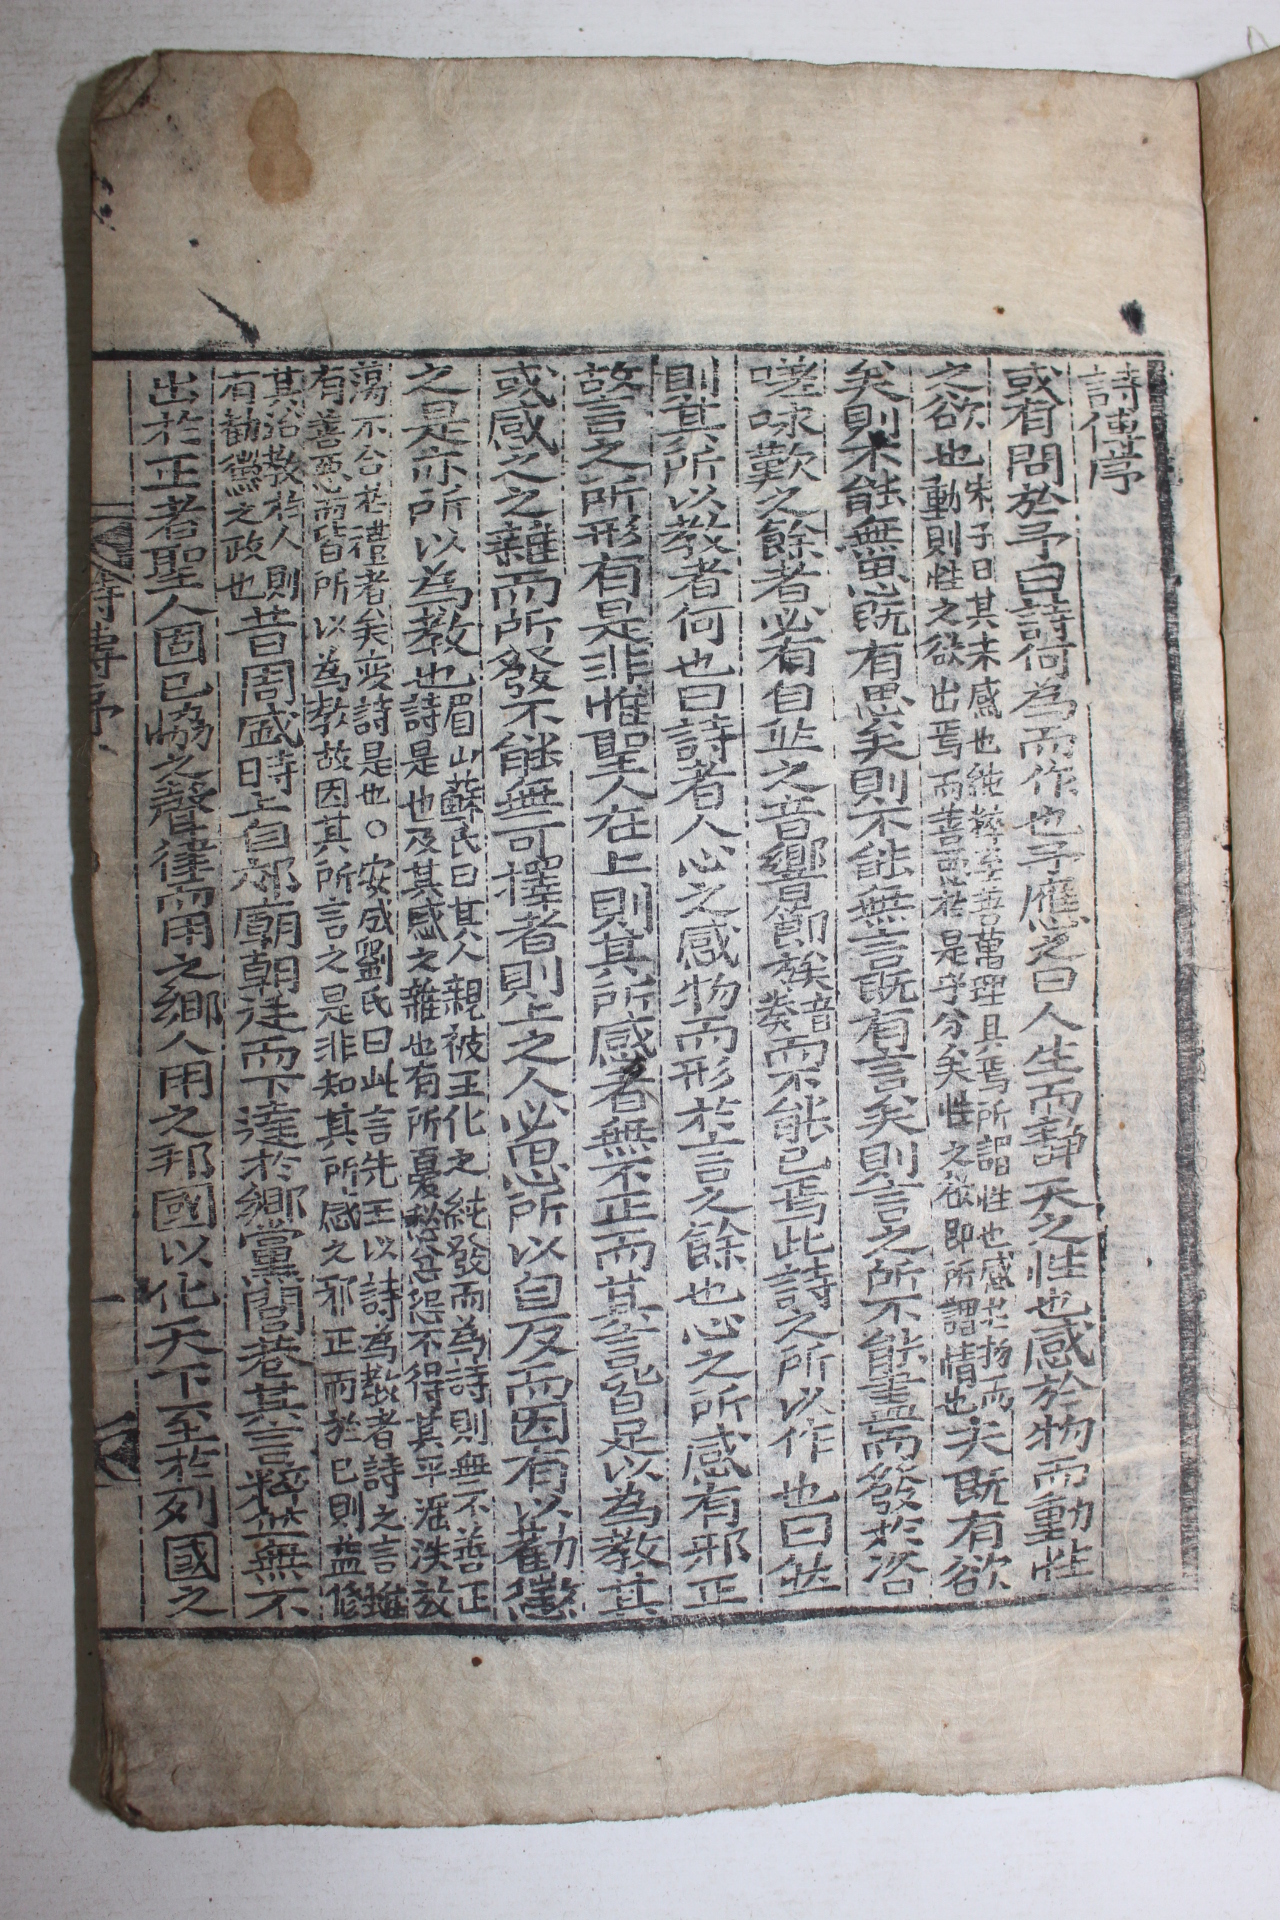 詩傳序
或有問於予曰詩何爲而作也予應之曰人生而靜天之性也感於物而動性
之欲也朱子曰其未感也純粹至善萬理具焉所謂性也感於物而動則性之欲出焉而善惡於是乎分矣性之欲即所謂情也夫既有欲
矣則不能無思既有思矣則不能無言既有言矣則言之所不能盡而發於咨
嗟咏歎之餘者必有自然之音響節族音奏而不能已焉此詩之所以作也曰然
則其所以教者何也曰詩者人心之感物而形於言之餘也心之所感有邪正
故言之所形有是非惟聖人在上則其所感者無不正而其言皆足以為教其
或感之之雜而所發不能無可擇者則上之人必思所以自反而因有以勸懲
之是亦所以為教也眉山蘇氏曰其人親被王化之純發而為詩則無不善正詩是也及其感之雜也有所憂愁忿怨不得其平淫泆放
蕩不合於禮者矣変詩是也○安成劉氏曰此言先王以詩為教者詩之言雖有善惡而皆所以為教故因其所言之是非知其所感之邪正而於己則益修
其治教於人則有勸懲之政也昔周盛時上自郊廟朝廷而下達於鄉黨閭巷其言粹然無不
出於正者聖人固已恊之聲律而用之鄉人用之邦國以化天下至於列國之
詩傳序
一